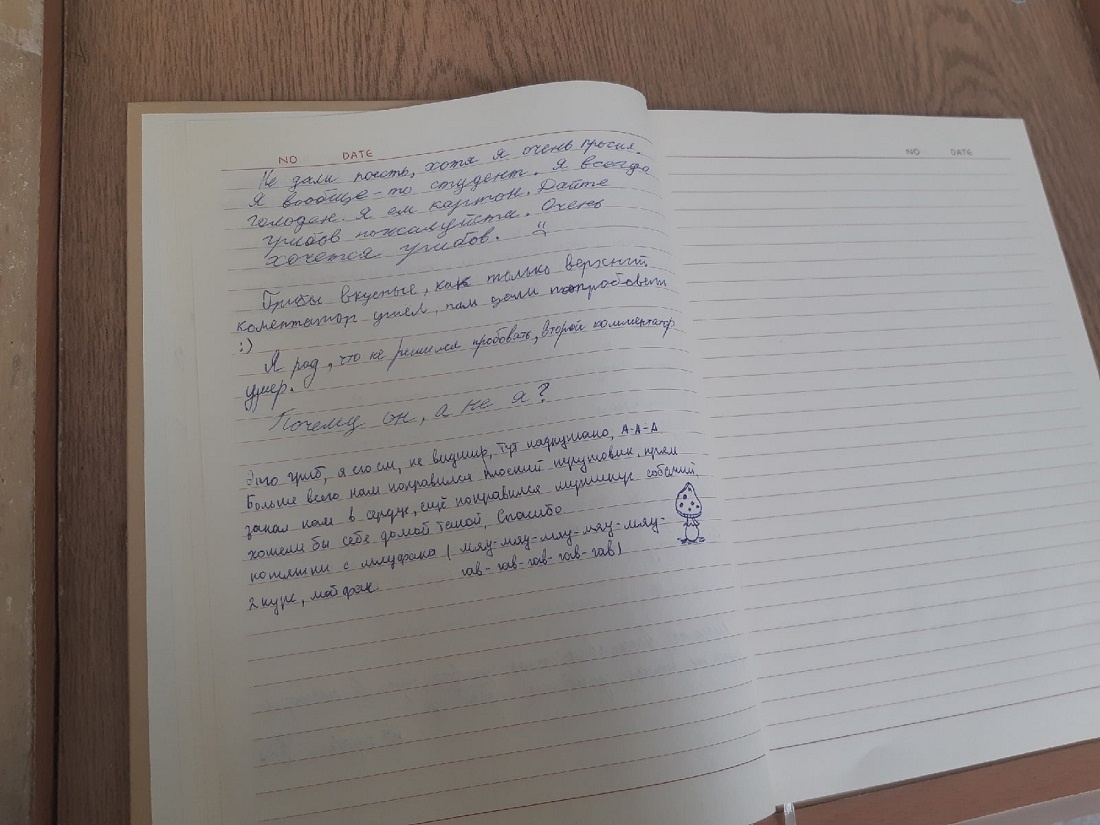 NO DATE
Не дали поесть, хотя я очень просил.
Я вообще-то студент. Я всегда
голоден. Я ем картон. Дайте
грибов пожалуйста. Очень
хочется грибов.
Грибы вкусные, как только верхний
коментатор ушел, нам дали попробовать
:)
Я рад, что не решился пробовать, второй комментатор
умер.
Почему он, а не я?
Это гриб, я его ем, не видишь, тут накумано, А-А-А
Больше всего нам понравился плоский трутовик, прям
запал нам в сердце, ещё понравился мутинус собачий,
хотели бы себе домой такой. Спасибо
котятки с (мяу-мяу-мяу-мяу-мяу-
2 курс, гав-гав-гав-гав-гав)
NO DATE